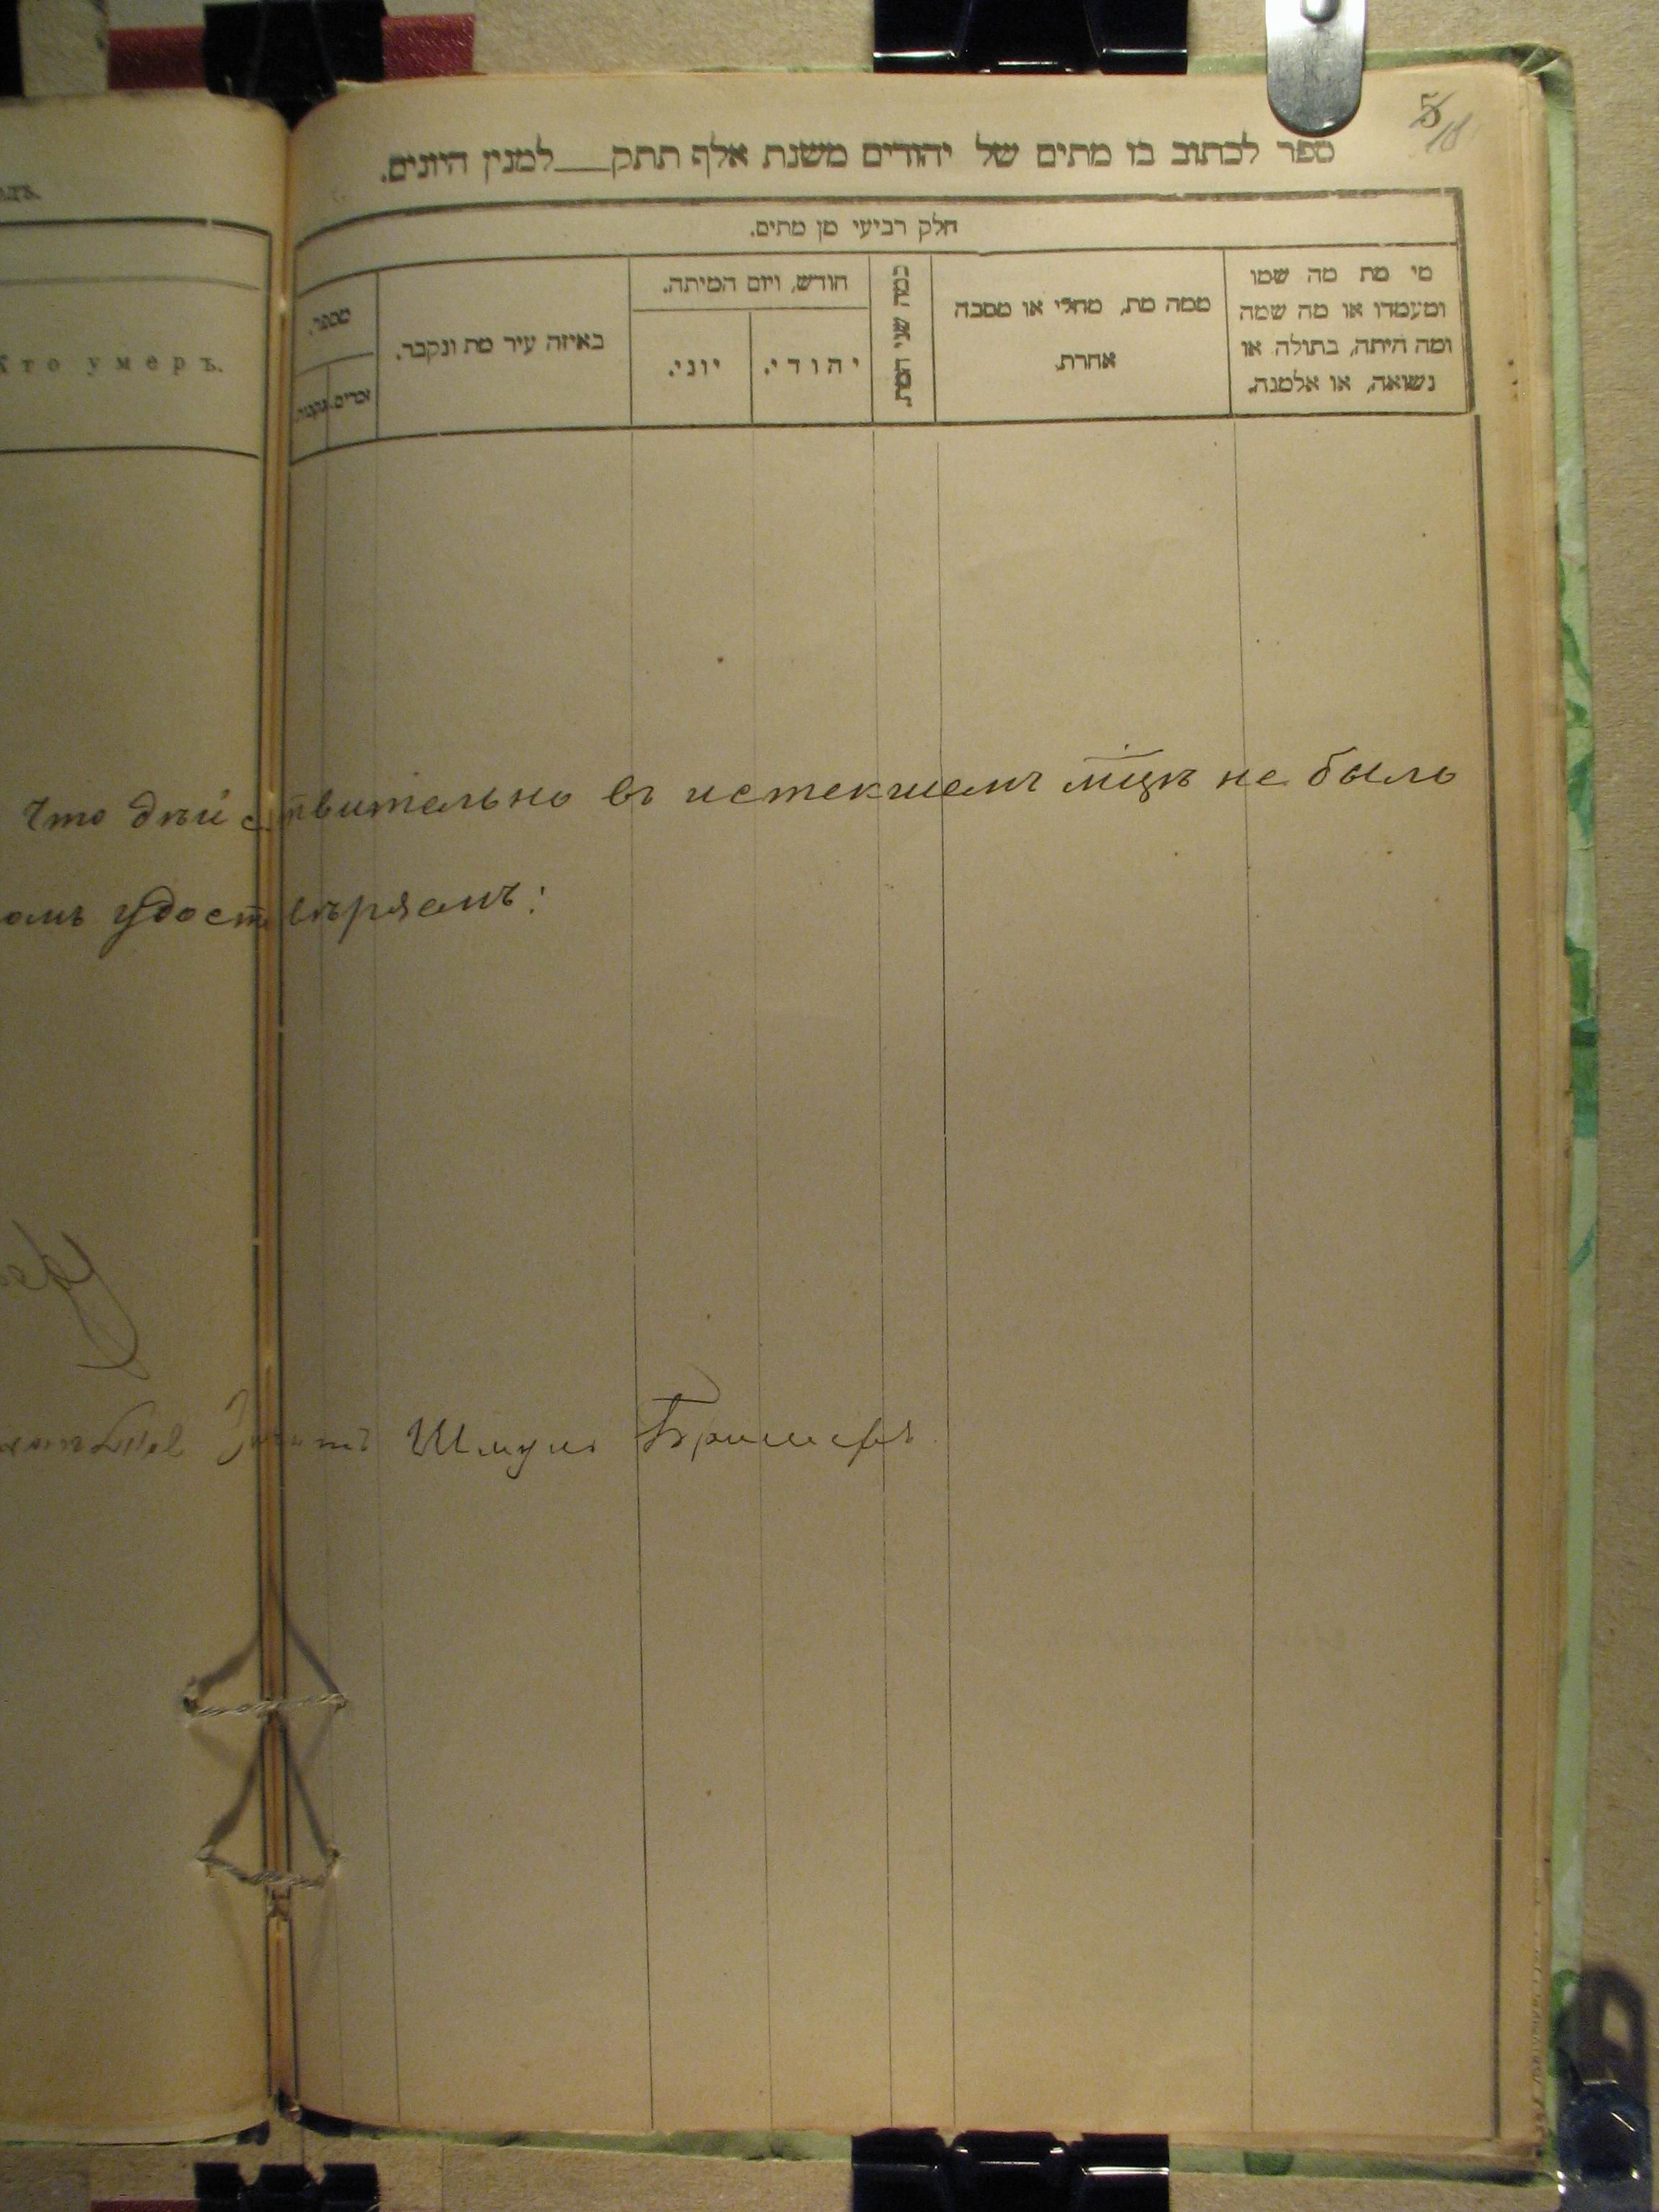 5
18
ספר לכתוב בו מתים של יהודים משנת אלף תתק__למנין היונים.
חלק רביעי מן מתים.
מי מת מה שמו
ומעמדו או מה שמה
ומה היתה, בתולה או
נשואה, או אלמנה.
ממה מת, מחלי או מסבה
אחרת.
כמה שני המת.
חודש, ויום המיתה.
יהודי.
יוני.
באיזה עיר מת ונקבר.
מספר.
זכרים.
נקבות.
Кто умеръ.
Что дѣйствительно въ истекшемъ мцѣ не было
удостовѣряемъ:
Шмуль